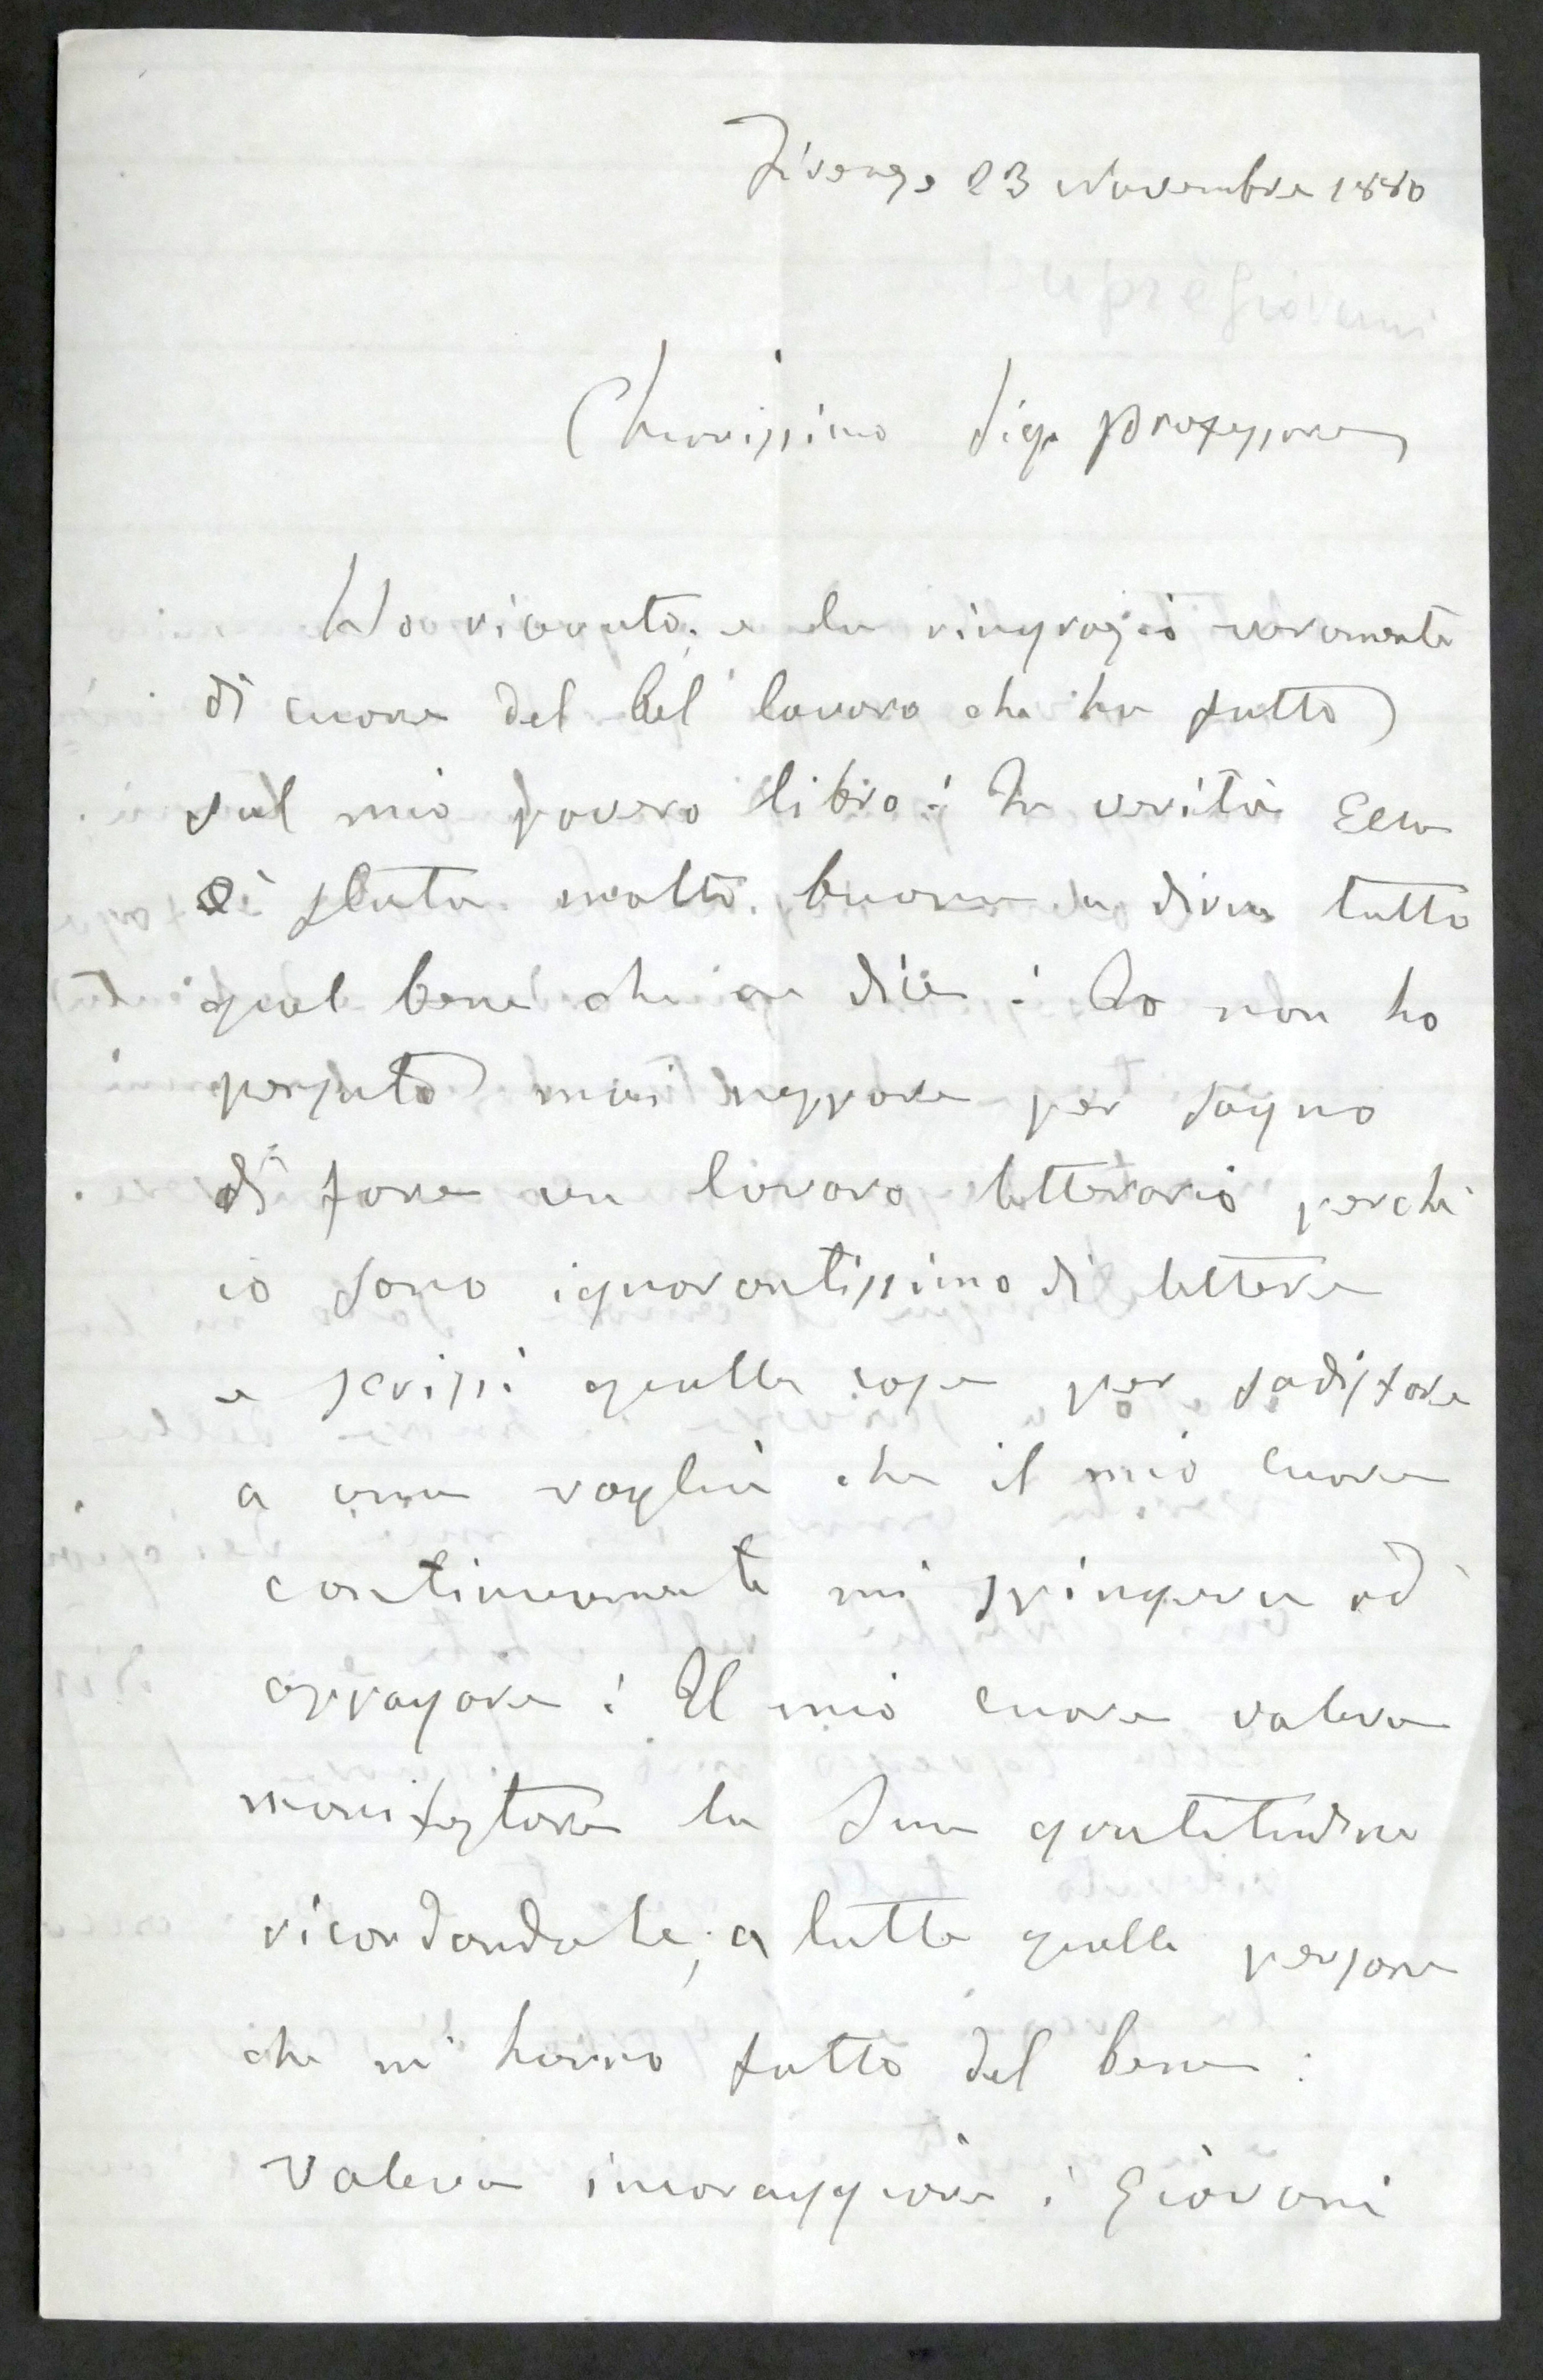 Firenze 23 Novembre 1880
Chiarissimo Sig. Professore
Ho ricevuto, e la ringrazio veramente
di cuore del bel lavoro che ha fatto
sul mio povero libro: In verità Ella
è stata molto buona a dire tutto
quel bene che ne dice: Io non ho
pensato mai neppure per sogno
di fare un lavoro letterario perchè
io sono ignorantissimo di lettere
e scrissi quelle cose per sadisfare
a una voglia che il mio cuore
continuamente mi spingeva ad
appagare: Il mio cuore voleva
manifestare la sua gratitudine
ricordandole, a tutte quelle persone
che mi hanno fatto del bene:
Voleva incoraggiare i Giovani